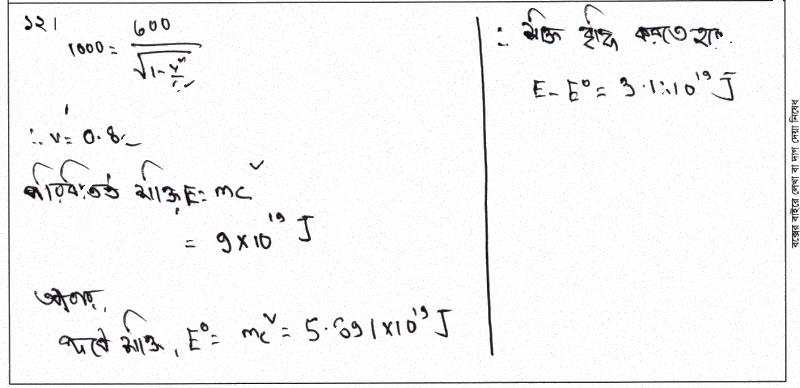 ১২।
1000 = 600 / √1-v²/c²
∴ v = 0.8c
পরিবর্তিত শক্তি E = mc²
= 9×10¹⁹ J
আবার,
পূর্বে শক্তি, E⁰ = mc² = 5.391×10¹⁹ J
∴ শক্তি বৃদ্ধি করতে হবে
E - E⁰ = 3.1×10¹⁹ J
বক্সের বাইরে লেখা বা দাগ দেয়া নিষেধ